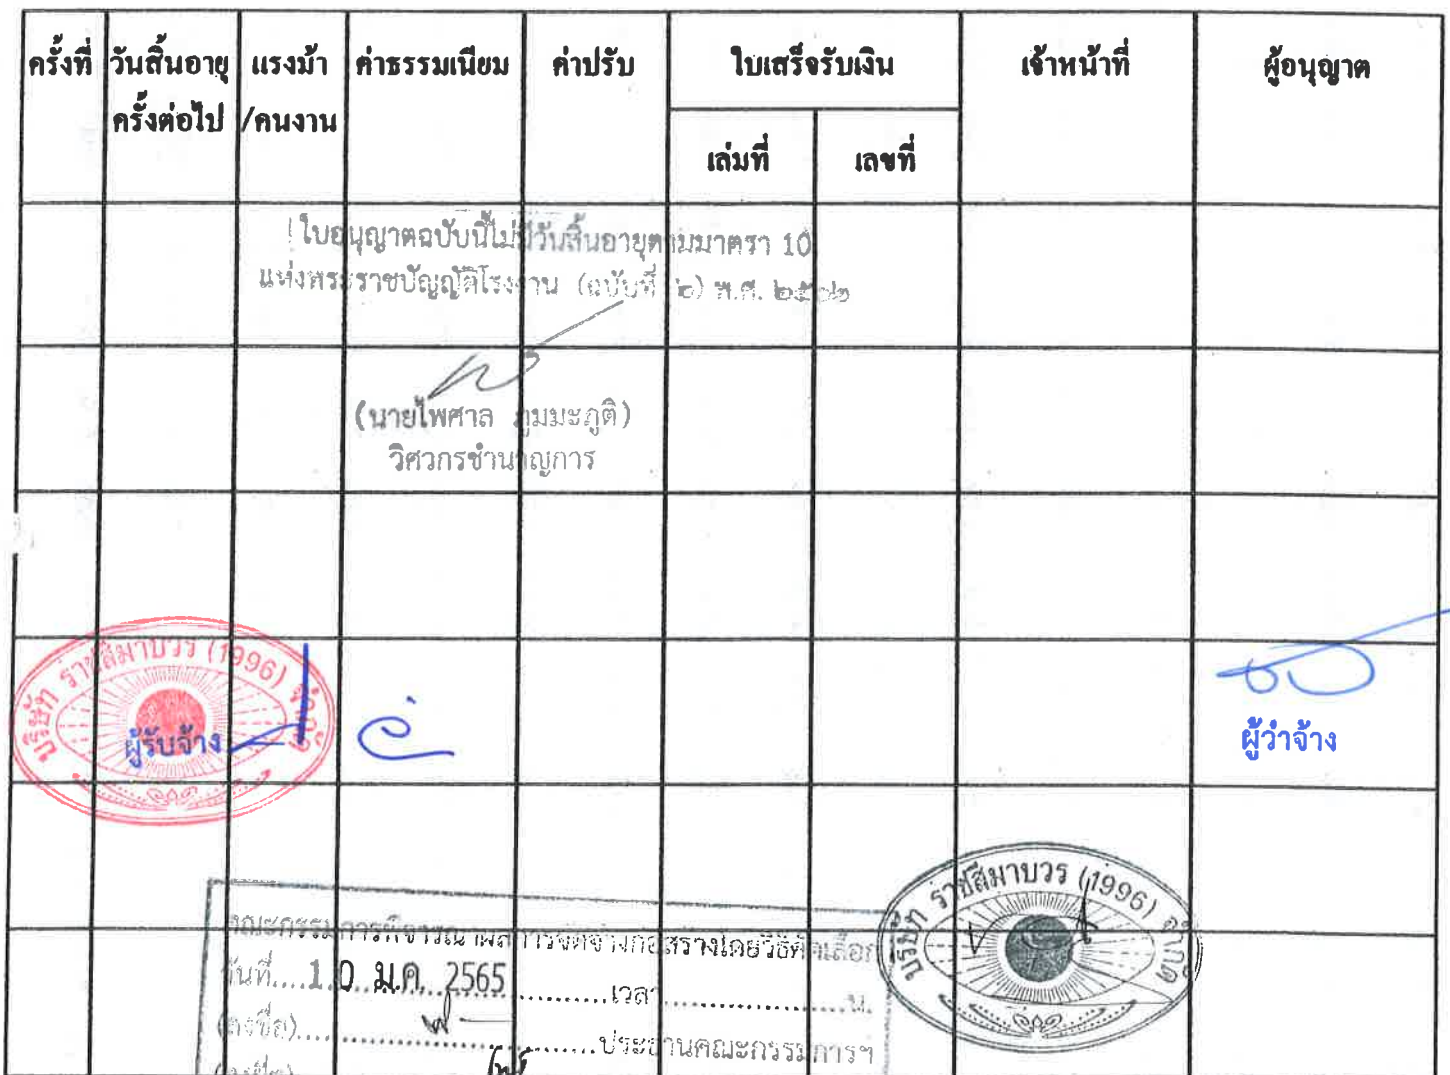 ครั้งที่ วันสิ้นอายุ แรงม้า ค่าธรรมเนียม ค่าปรับ ใบเสร็จรับเงิน เจ้าหน้าที่ ผู้อนุญาต
ครั้งต่อไป /คนงาน
เล่มที่ เลขที่
ใบอนุญาตฉบับนี้ไม่มีวันสิ้นอายุตามมาตรา 10
แห่งพระราชบัญญัติโรงงาน (ฉบับที่ ๒) พ.ศ. ๒๕๖๒
(นายไพศาล ภูมมะภูติ)
วิศวกรชำนาญการ
บริษัท ราชสีมาบวร (1996) จำกัด
ผู้รับจ้าง
ผู้ว่าจ้าง
บริษัท ราชสีมาบวร (1996) จำกัด
คณะกรรมการพิจารณาผลการจัดจ้างก่อสร้างโดยวิธีคัดเลือก
วันที่....10 ม.ค. 2565............เวลา......................น.
(ลงชื่อ)..........................................ประธานคณะกรรมการฯ
(ลงชื่อ)